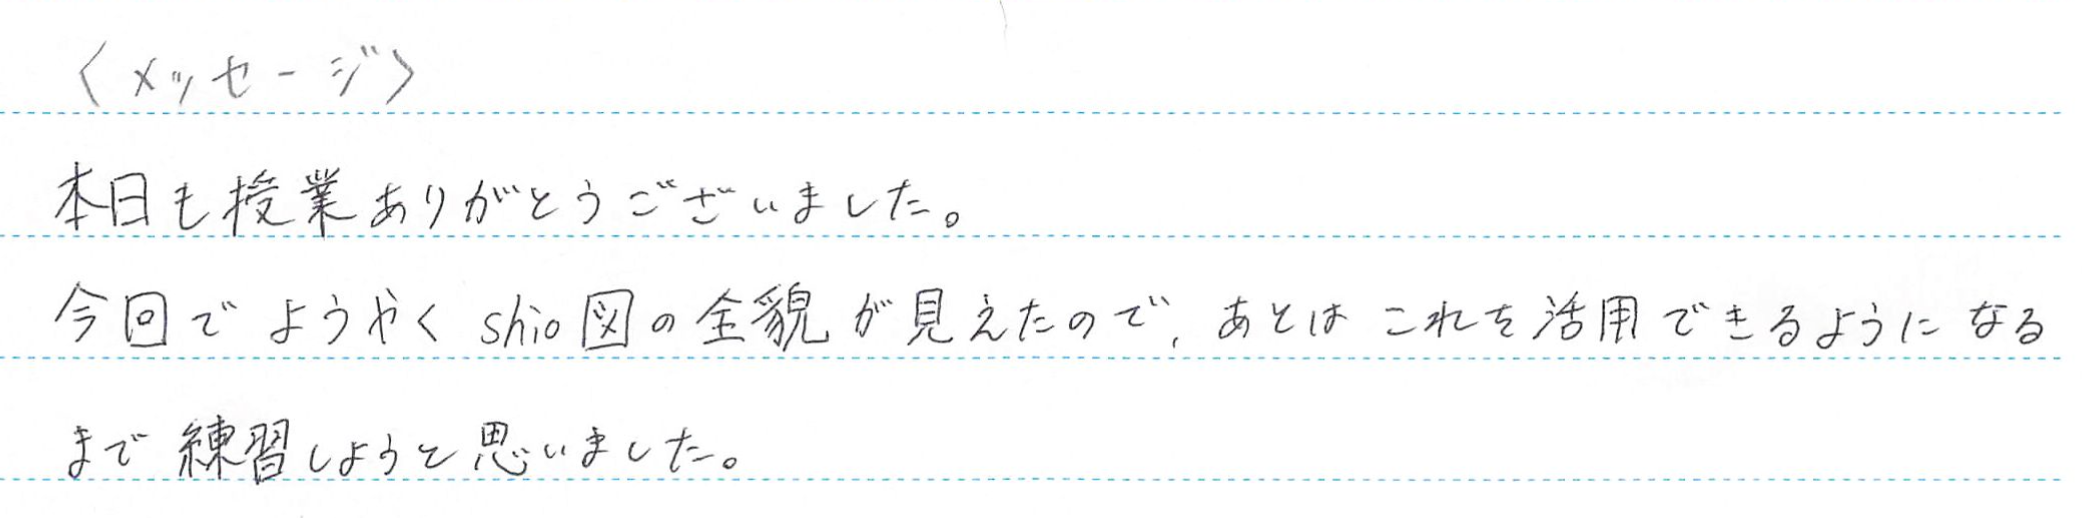 〈メッセージ〉
本日も授業ありがとうございました。
今回でようやくshio図の全貌が見えたので、あとはこれを活用できるようになる
まで練習しようと思いました。